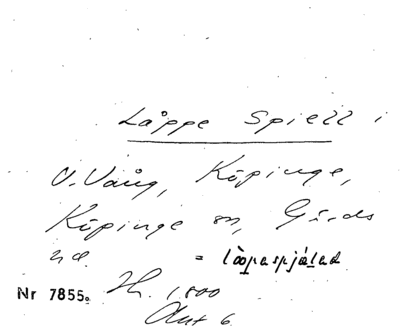 Låppe Spiell i
V. Vång, Köpinge,
Köpinge sn, Gärds
hd. = 
Nr 7855. Hr. 1800
Akt 6